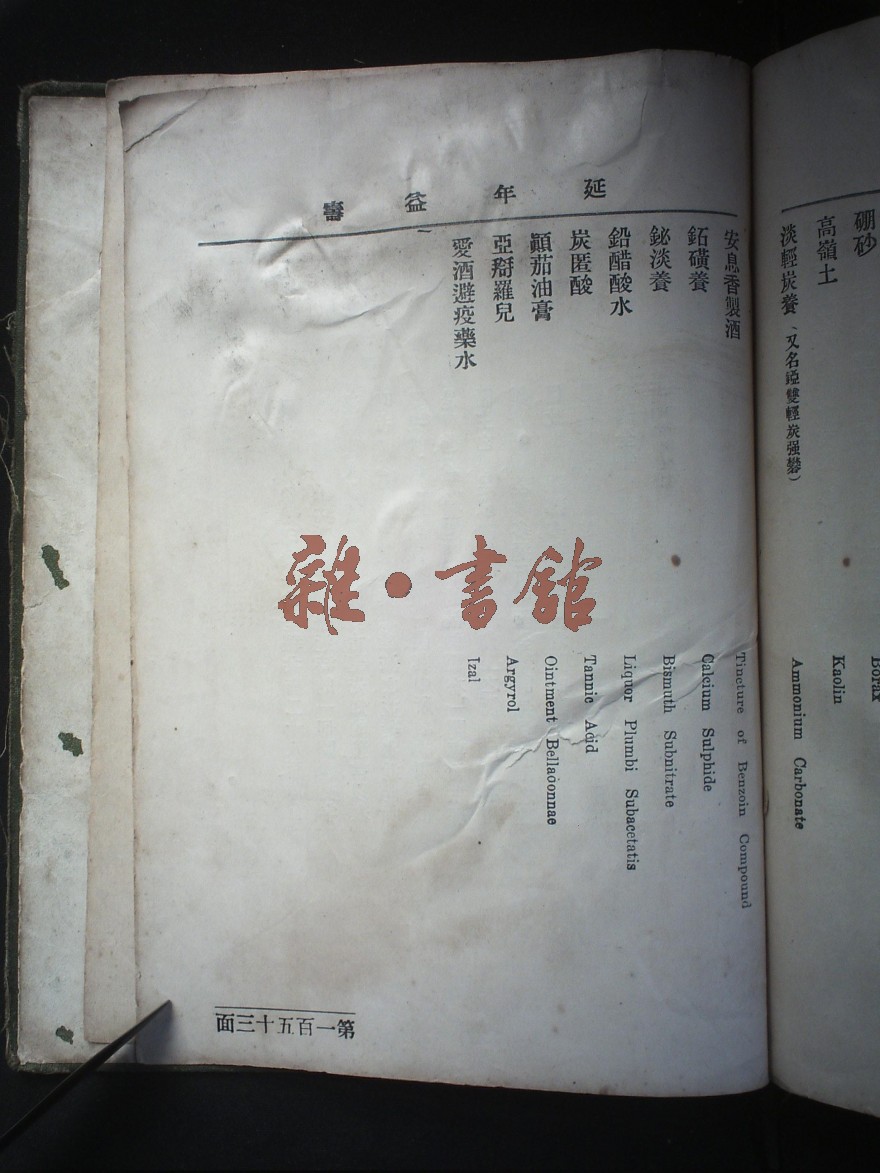 硼砂 Borax
高嶺土 Kaolin
淡輕炭養（又名錏雙輕炭强礬） Ammonium Carbonate
延年益壽
安息香製酒 Tincture of Benzoin Compound
鉐磺養 Calcium Sulphide
鉍淡養 Bismuth Subnitrate
鉛醋酸水 Liquor Plumbi Subacetatis
炭匿酸 Tannic Acid
顚茄油膏 Ointment Bellaòonnae
亞搿羅兒 Argyrol
愛酒避疫藥水 Izal
第一百五十三面
雜·書館